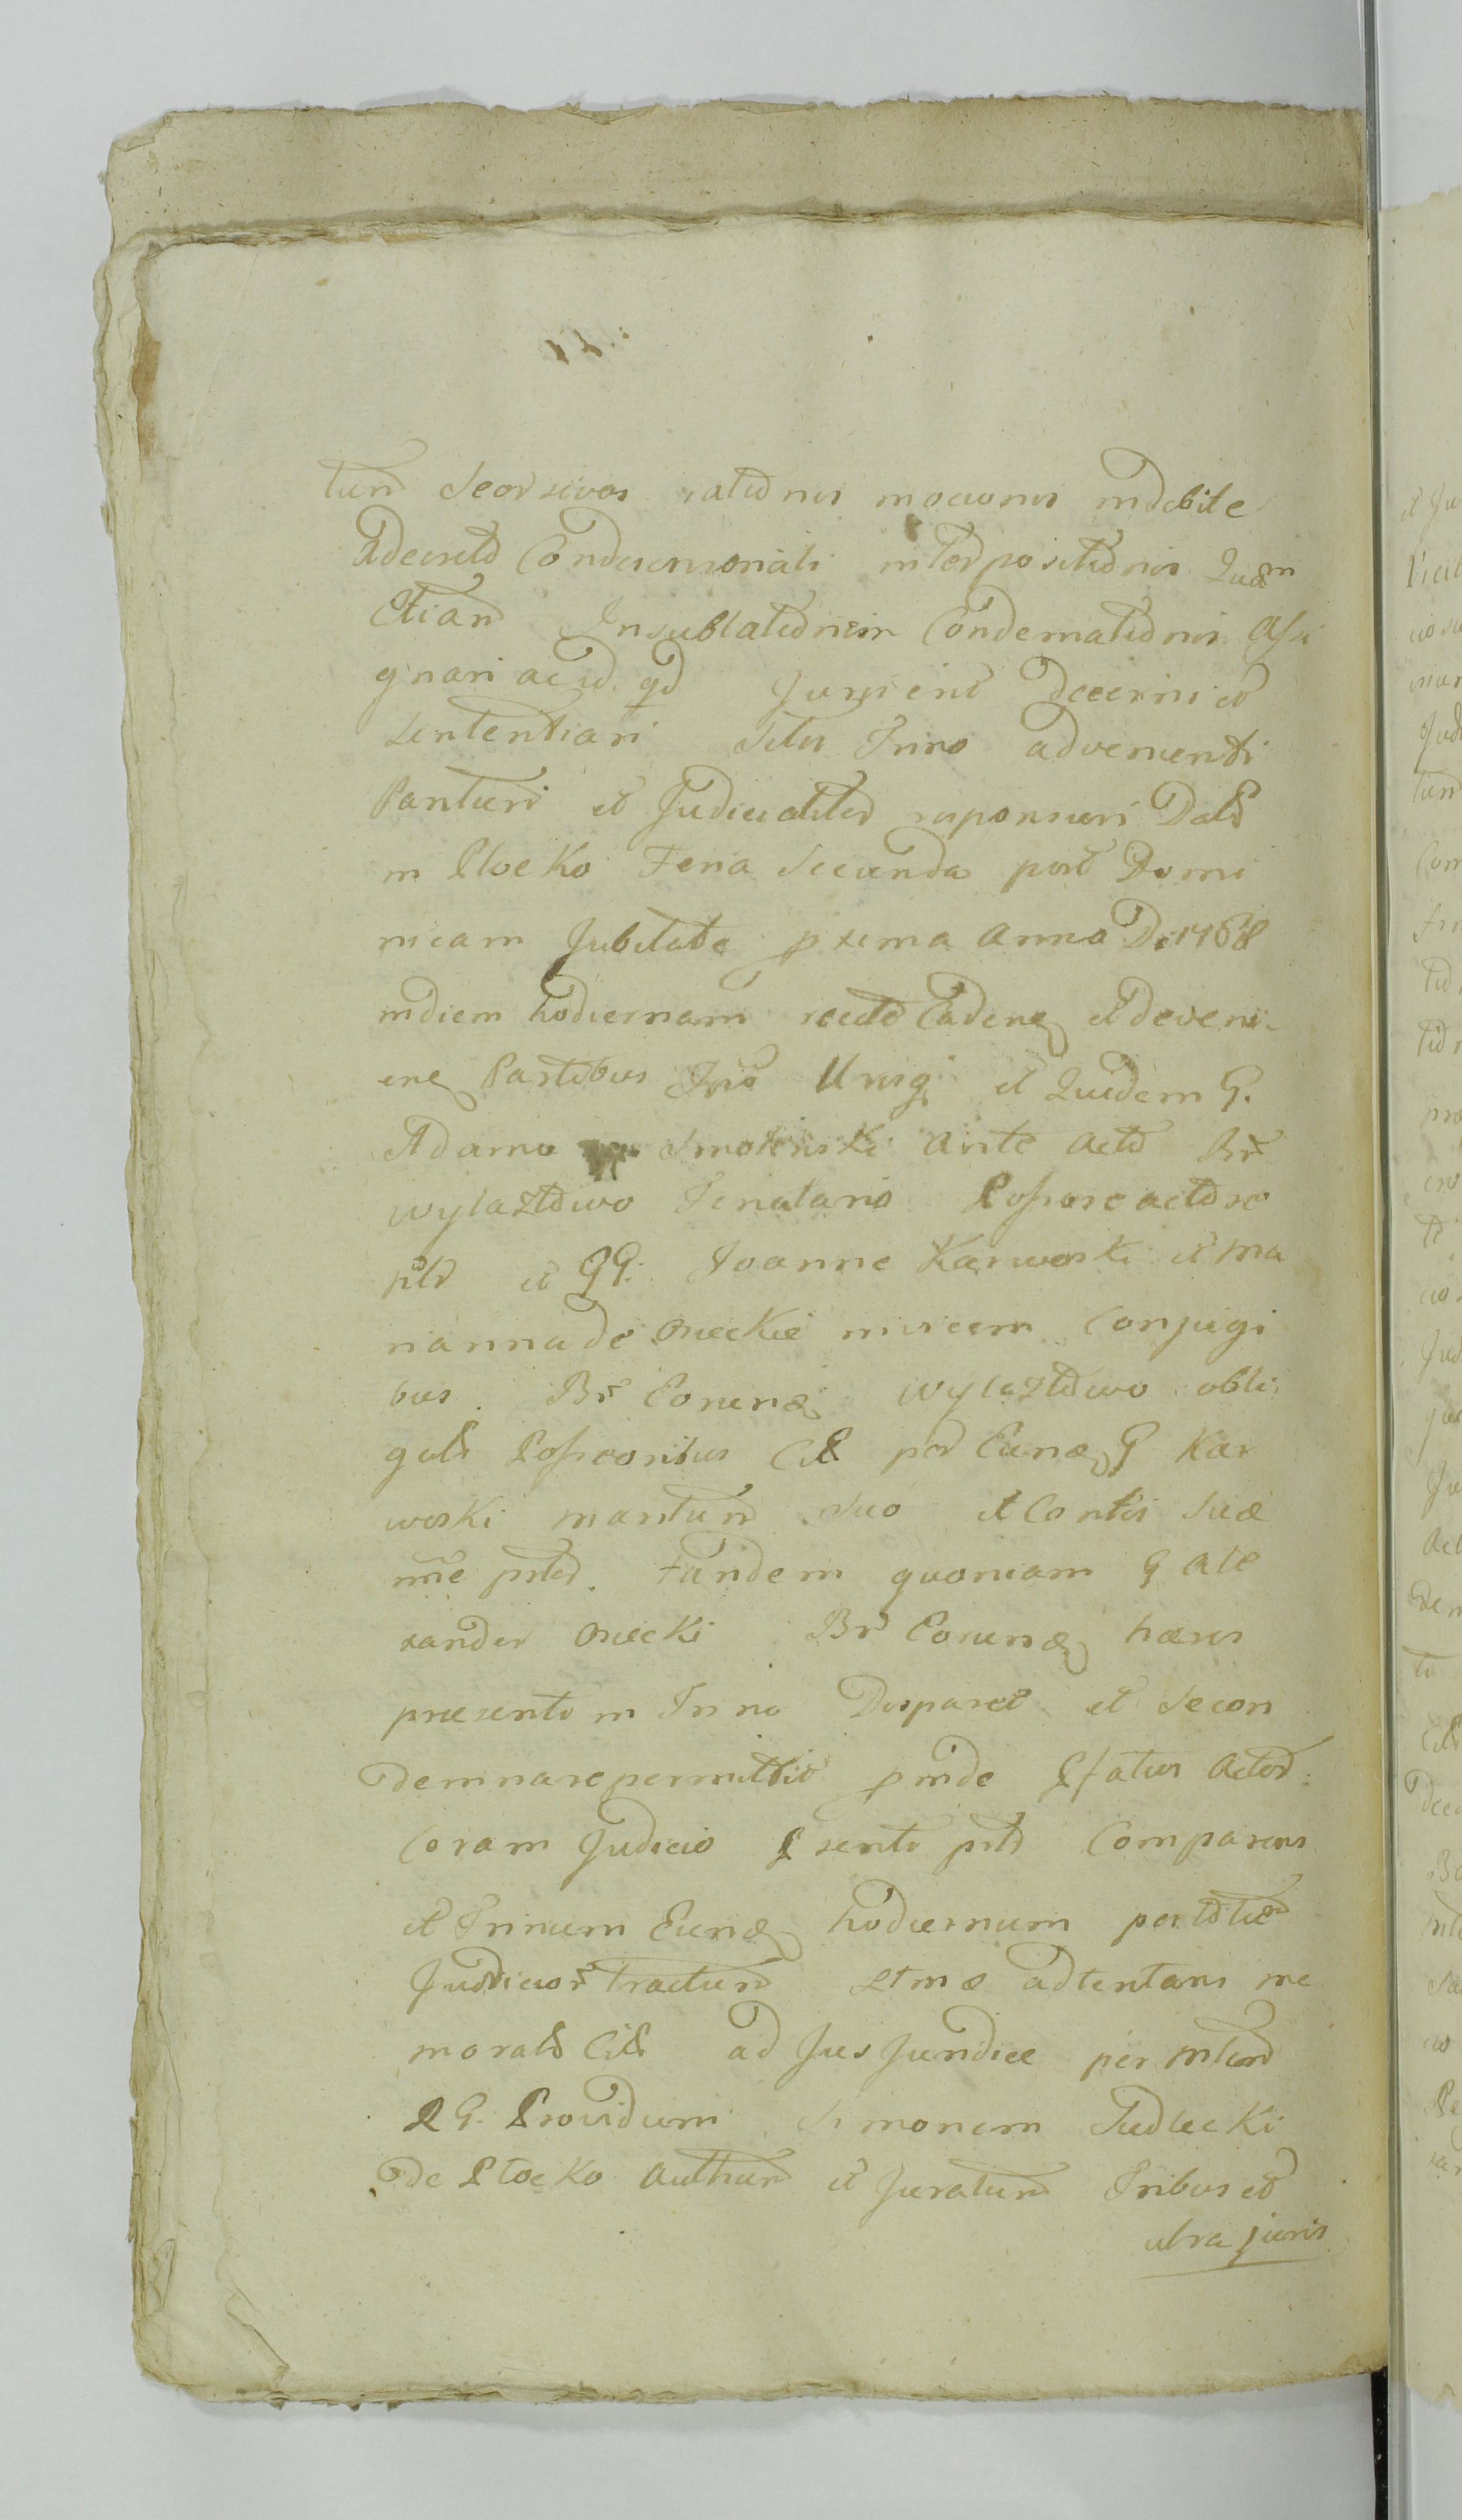 tum seorsivas rationis mocionis indebite
Decreto Condescensionali interpositionis Quam
Etiam In sublationem Condemnationis Assi
gnari ac id qd Juris erit decerni et
sententiari Sitis Trino advenienti
Parituri et Judicialiter responsuri Datt
in Plocko Feria Secunda post Domi
nicam Jubilate pxima Anno D. 1768
in diem hodiernam recte Caden et deveni-
en Partibus Inō et Quidem G.
Adamo Smolenski Ante Acto Br
wylazłowo Tenutario Possore actore
ptr et GG. Joanne Karwoski et Ma
rianna de Osieckie invicem Conjugi
bus Br Eorund wylazłowo obli
gat Possroribus Citt per Eund G Kar
woski maritum suo et Contis Suæ
nne ptr. tandem quoniam G Ale
xander Osiecki Br Eorund hæres
præsenti in Trino Disparet et Se con
demnare permittit pinde Pfatus Actor
Coram Judicio Psenti ptr Comparens
et Trinum Eund hodiernum per totu
Judicior tractum adtentans me
morat Citt ad Jus Juridice per Mtum
RG. Providum Simonem Siedlecki
de Plocko Authum et Juratum Tribus et
ultra juris